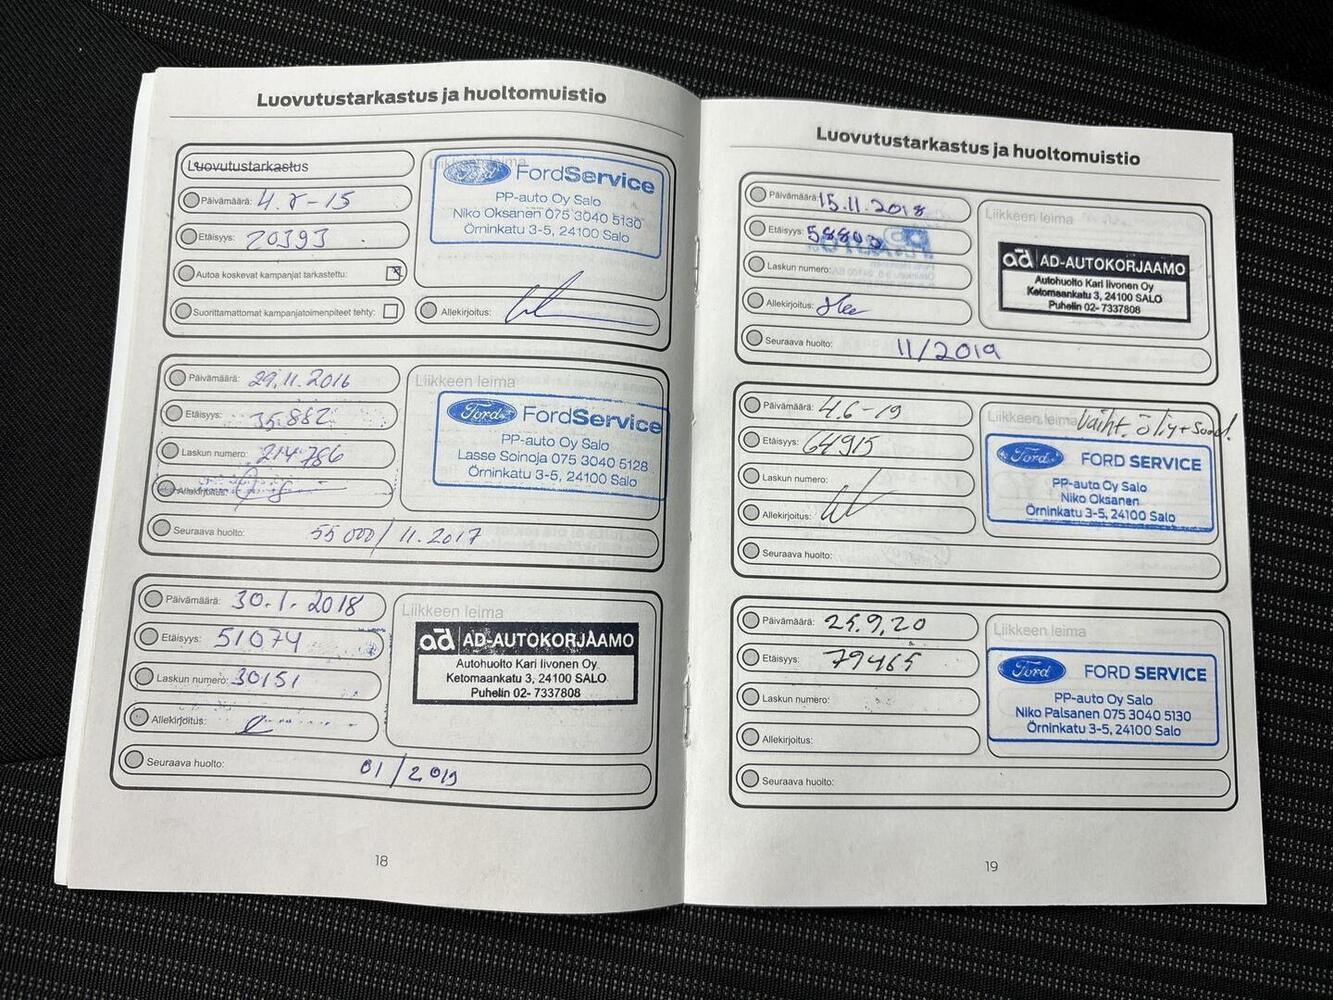 Luovutustarkastus ja huoltomuistio
Luovutustarkastus
Päivämäärä: 4.8-15
Etäisyys: 20393
Autoa koskevat kampanjat tarkastettu:
Suorittamattomat kampanjatoimenpiteet tehty:
Liikkeen leima
FordService
PP-auto Oy Salo
Niko Oksanen 075 3040 5130
Örninkatu 3-5, 24100 Salo
Allekirjoitus:
Päivämäärä: 29.11.2016
Etäisyys: 35.882
Laskun numero: 214786
Allekirjoitus:
Liikkeen leima
Ford FordService
PP-auto Oy Salo
Lasse Soinoja 075 3040 5128
Örninkatu 3-5, 24100 Salo
Seuraava huolto: 55 000 / 11.2017
Päivämäärä: 30.1.2018
Etäisyys: 51074
Laskun numero: 30151
Allekirjoitus:
Liikkeen leima
ad AD-AUTOKORJAAMO
Autohuolto Kari Iivonen Oy
Ketomaankatu 3, 24100 SALO
Puhelin 02- 7337808
Seuraava huolto: 01/2019
18
Luovutustarkastus ja huoltomuistio
Päivämäärä: 15.11.2018
Etäisyys: 58800
Laskun numero:
Allekirjoitus:
Liikkeen leima
ad AD-AUTOKORJAAMO
Autohuolto Kari Iivonen Oy
Ketomaankatu 3, 24100 SALO
Puhelin 02- 7337808
Seuraava huolto: 11/2019
Päivämäärä: 4.6-19
Etäisyys: 64915
Laskun numero:
Allekirjoitus:
Liikkeen leima Vaiht. öljy + Suod!
Ford FORD SERVICE
PP-auto Oy Salo
Niko Oksanen
Örninkatu 3-5, 24100 Salo
Seuraava huolto:
Päivämäärä: 25.9.20
Etäisyys: 79465
Laskun numero:
Allekirjoitus:
Liikkeen leima
Ford FORD SERVICE
PP-auto Oy Salo
Niko Palsanen 075 3040 5130
Örninkatu 3-5, 24100 Salo
Seuraava huolto:
19